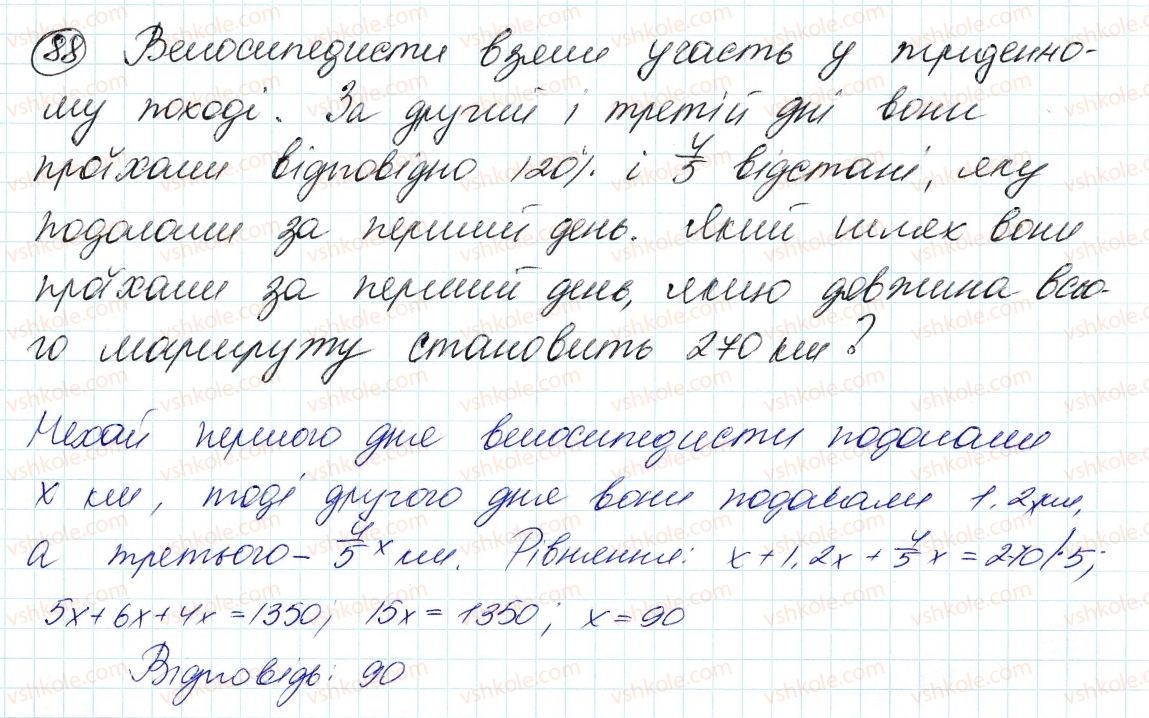 88 Велосипедисти взяли участь у триденно-
му поході. За другий і третій дні вони
проїхали відповідно 120% і 4/5 відстані, яку
подолали за перший день. Який шлях вони
проїхали за перший день, якщо довжина всьо-
го маршруту становить 270 км?
Нехай першого дня велосипедисти подолали
x км, тоді другого дня вони подолали 1,2x км,
а третього – 4/5 x км. Рівняння: x + 1,2x + 4/5 x = 270 |·5;
5x + 6x + 4x = 1350; 15x = 1350; x = 90
Відповідь: 90